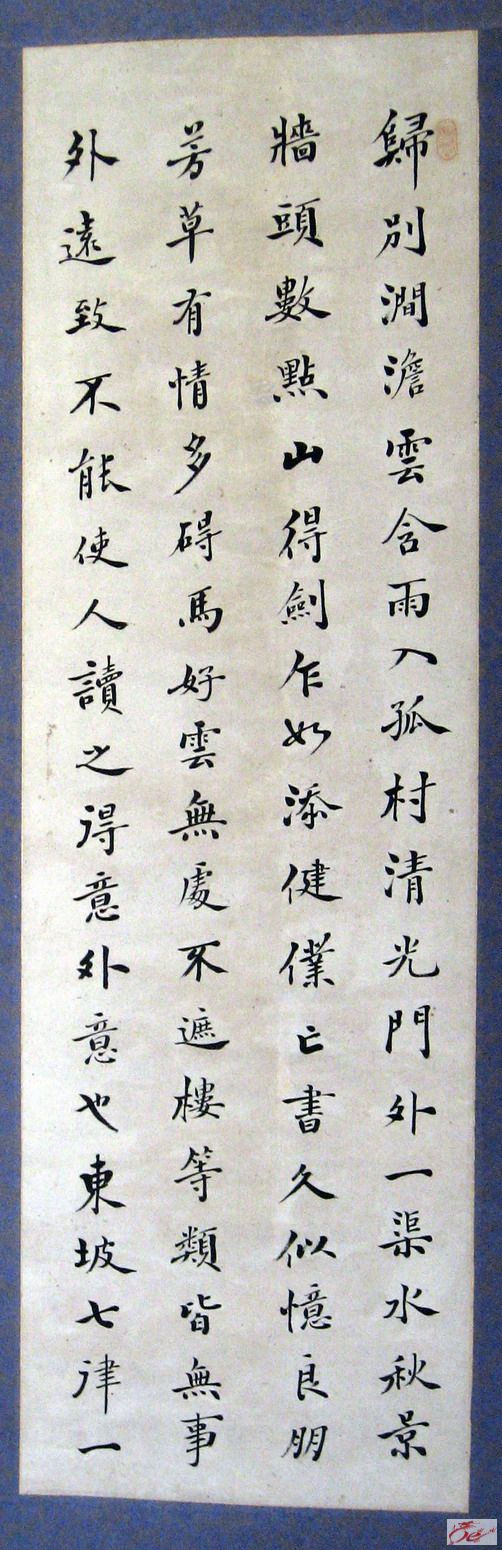 歸別澗澹雲含雨入孤村清光門外一渠水秋景
牆頭數點山得劍乍如添健僕亡書久似憶良朋
芳草有情多碍馬好雲無處不遮樓等類皆無事
外遠致不能使人讀之得意外意也東坡七律一